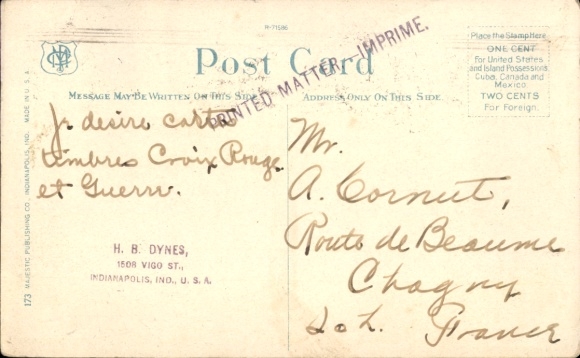 R-71586
Post Card
PRINTED-MATTER - IMPRIME.
Place the Stamp Here
ONE CENT
For United States
and Island Possessions
Cuba, Canada and
Mexico
TWO CENTS
For Foreign.
MESSAGE MAY BE WRITTEN ON THIS SIDE
ADDRESS ONLY ON THIS SIDE
Je desire cartes
timbres Croix Rouge
et Guerre.
H. B. DYNES,
1508 VIGO ST.,
INDIANAPOLIS, IND., U. S. A.
Mr.
A. Cornut,
Route de Beaume
Chagny
S. o. L. France
173 MAJESTIC PUBLISHING CO., INDIANAPOLIS, IND. MADE IN U.S.A.